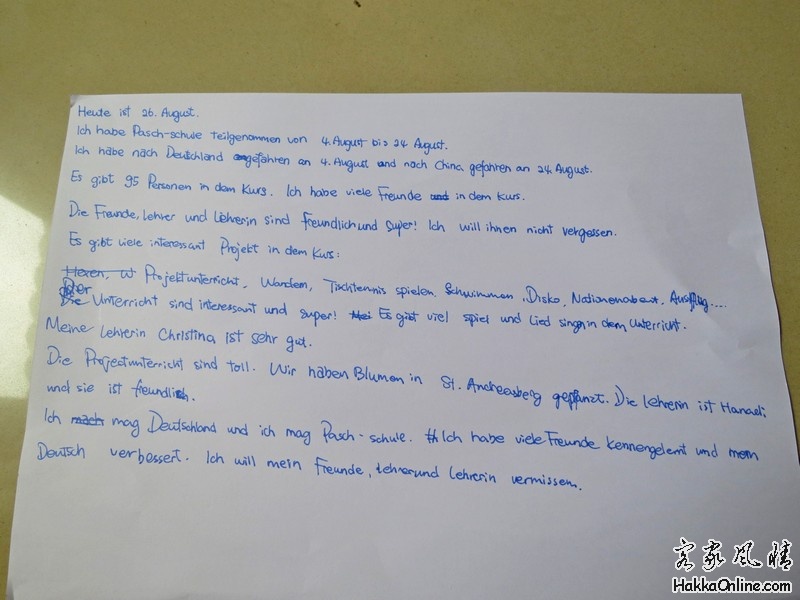 Heute ist 26. August.
Ich habe Pasch-schule teilgenommen von 4. August bis 24 August.
Ich habe nach Deutschland gefahren an 4. August und nach China gefahren an 24. August.
Es gibt 95 Personen in dem Kurs. Ich habe viele Freunde in dem Kurs.
Die Freunde, Lehrer und Lehrerin sind freundlich und super! Ich will ihnen nicht vergessen.
Es gibt viele interessant Projekt in dem Kurs:
Projektunterricht, Wandern, Tischtennis spielen, Schwimmen, Disko, Nationenabent, Ausflug....
Der Unterricht sind interessant und super! Es gibt viel spiel und Lied singn in dem Unterricht.
Meine Lehrerin Christina ist sehr gut.
Die Projectunterricht sind toll. Wir haben Blumen in St. Andreasberg gepflanzt. Die Lehrerin ist
und sie ist freundlich.
Ich mag Deutschland und ich mag Pasch-schule. Ich habe viele Freunde kennengelernt und mein
Deutsch verbessert. Ich will mein Freunde, Lehrer und Lehrerin vermissen.
客家风情
HakkaOnline.com